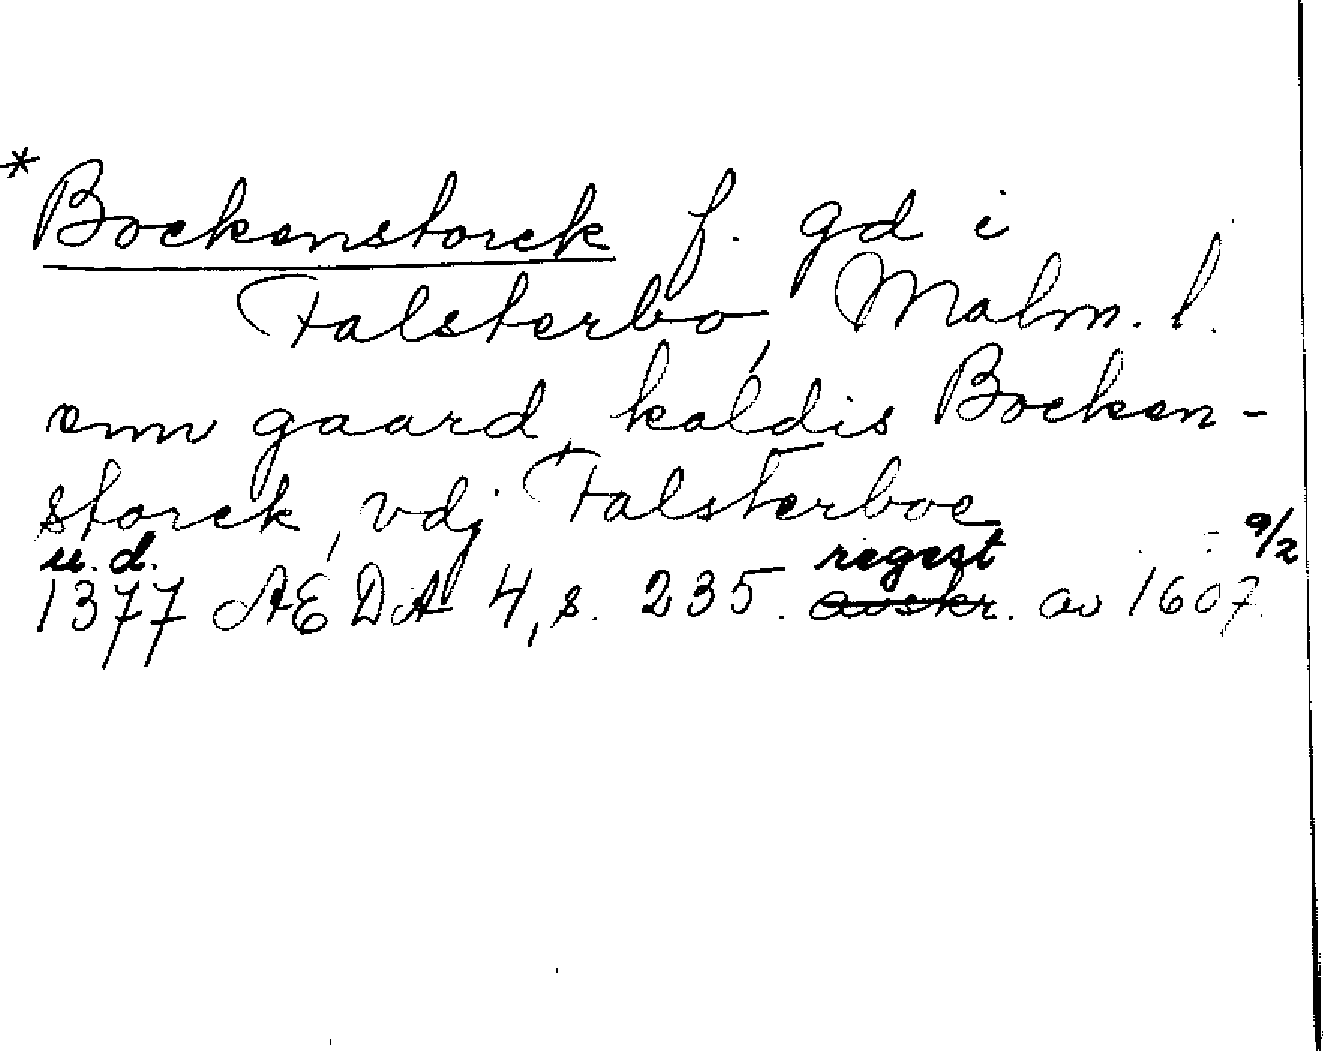 * Bockenstorck f. gd i
Falsterbo, Malm. l.
enn gaard, kaldis Bocken-
storck, vdj Falsterboe
u.d. regest 9/2
1377 AEDA 4, s. 235. avskr. av 1607.